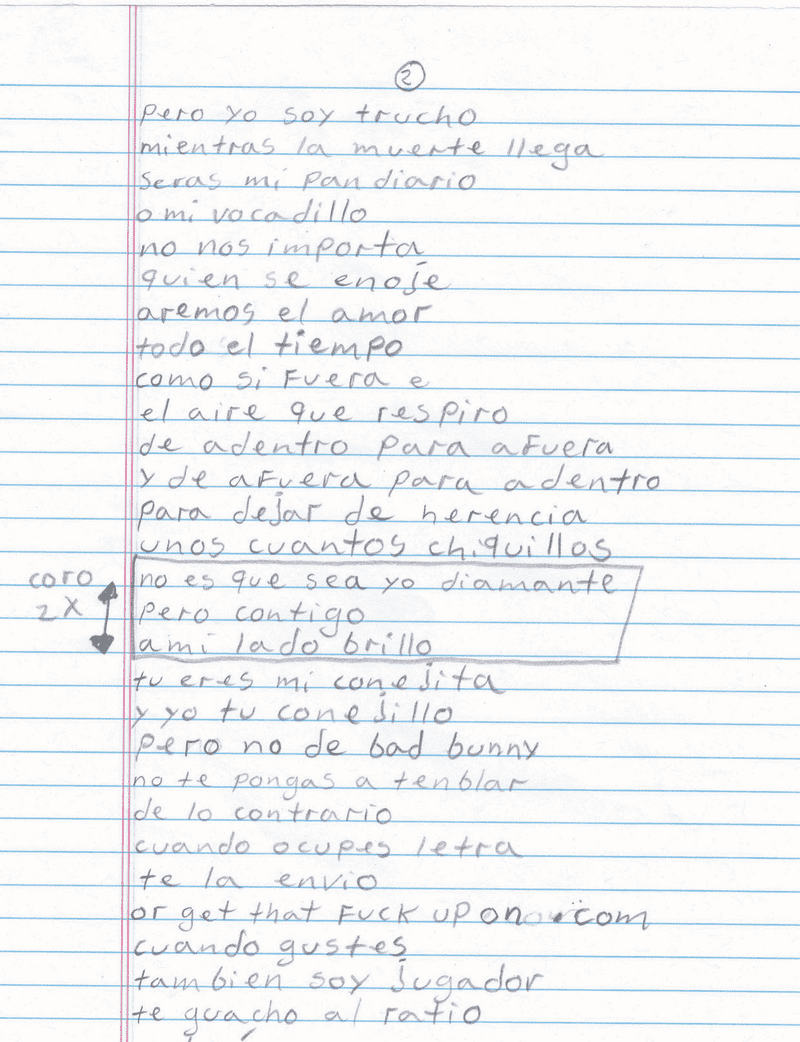 2
pero yo soy trucho
mientras la muerte llega
seras mi pan diario
o mi vocadillo
no nos importa
quien se enoje
aremos el amor
todo el tiempo
como si fuera e
el aire que respiro
de adentro para afuera
y de afuera para adentro
para dejar de herencia
unos cuantos chiquillos
coro 2X
no es que sea yo diamante
pero contigo
a mi lado brillo
tu eres mi conejita
y yo tu conejillo
pero no de bad bunny
no te pongas a tenblar
de lo contrario
cuando ocupes letra
te la envio
or get that FUCK UP on .com
cuando gustes
tambien soy jugador
te guacho al ratio